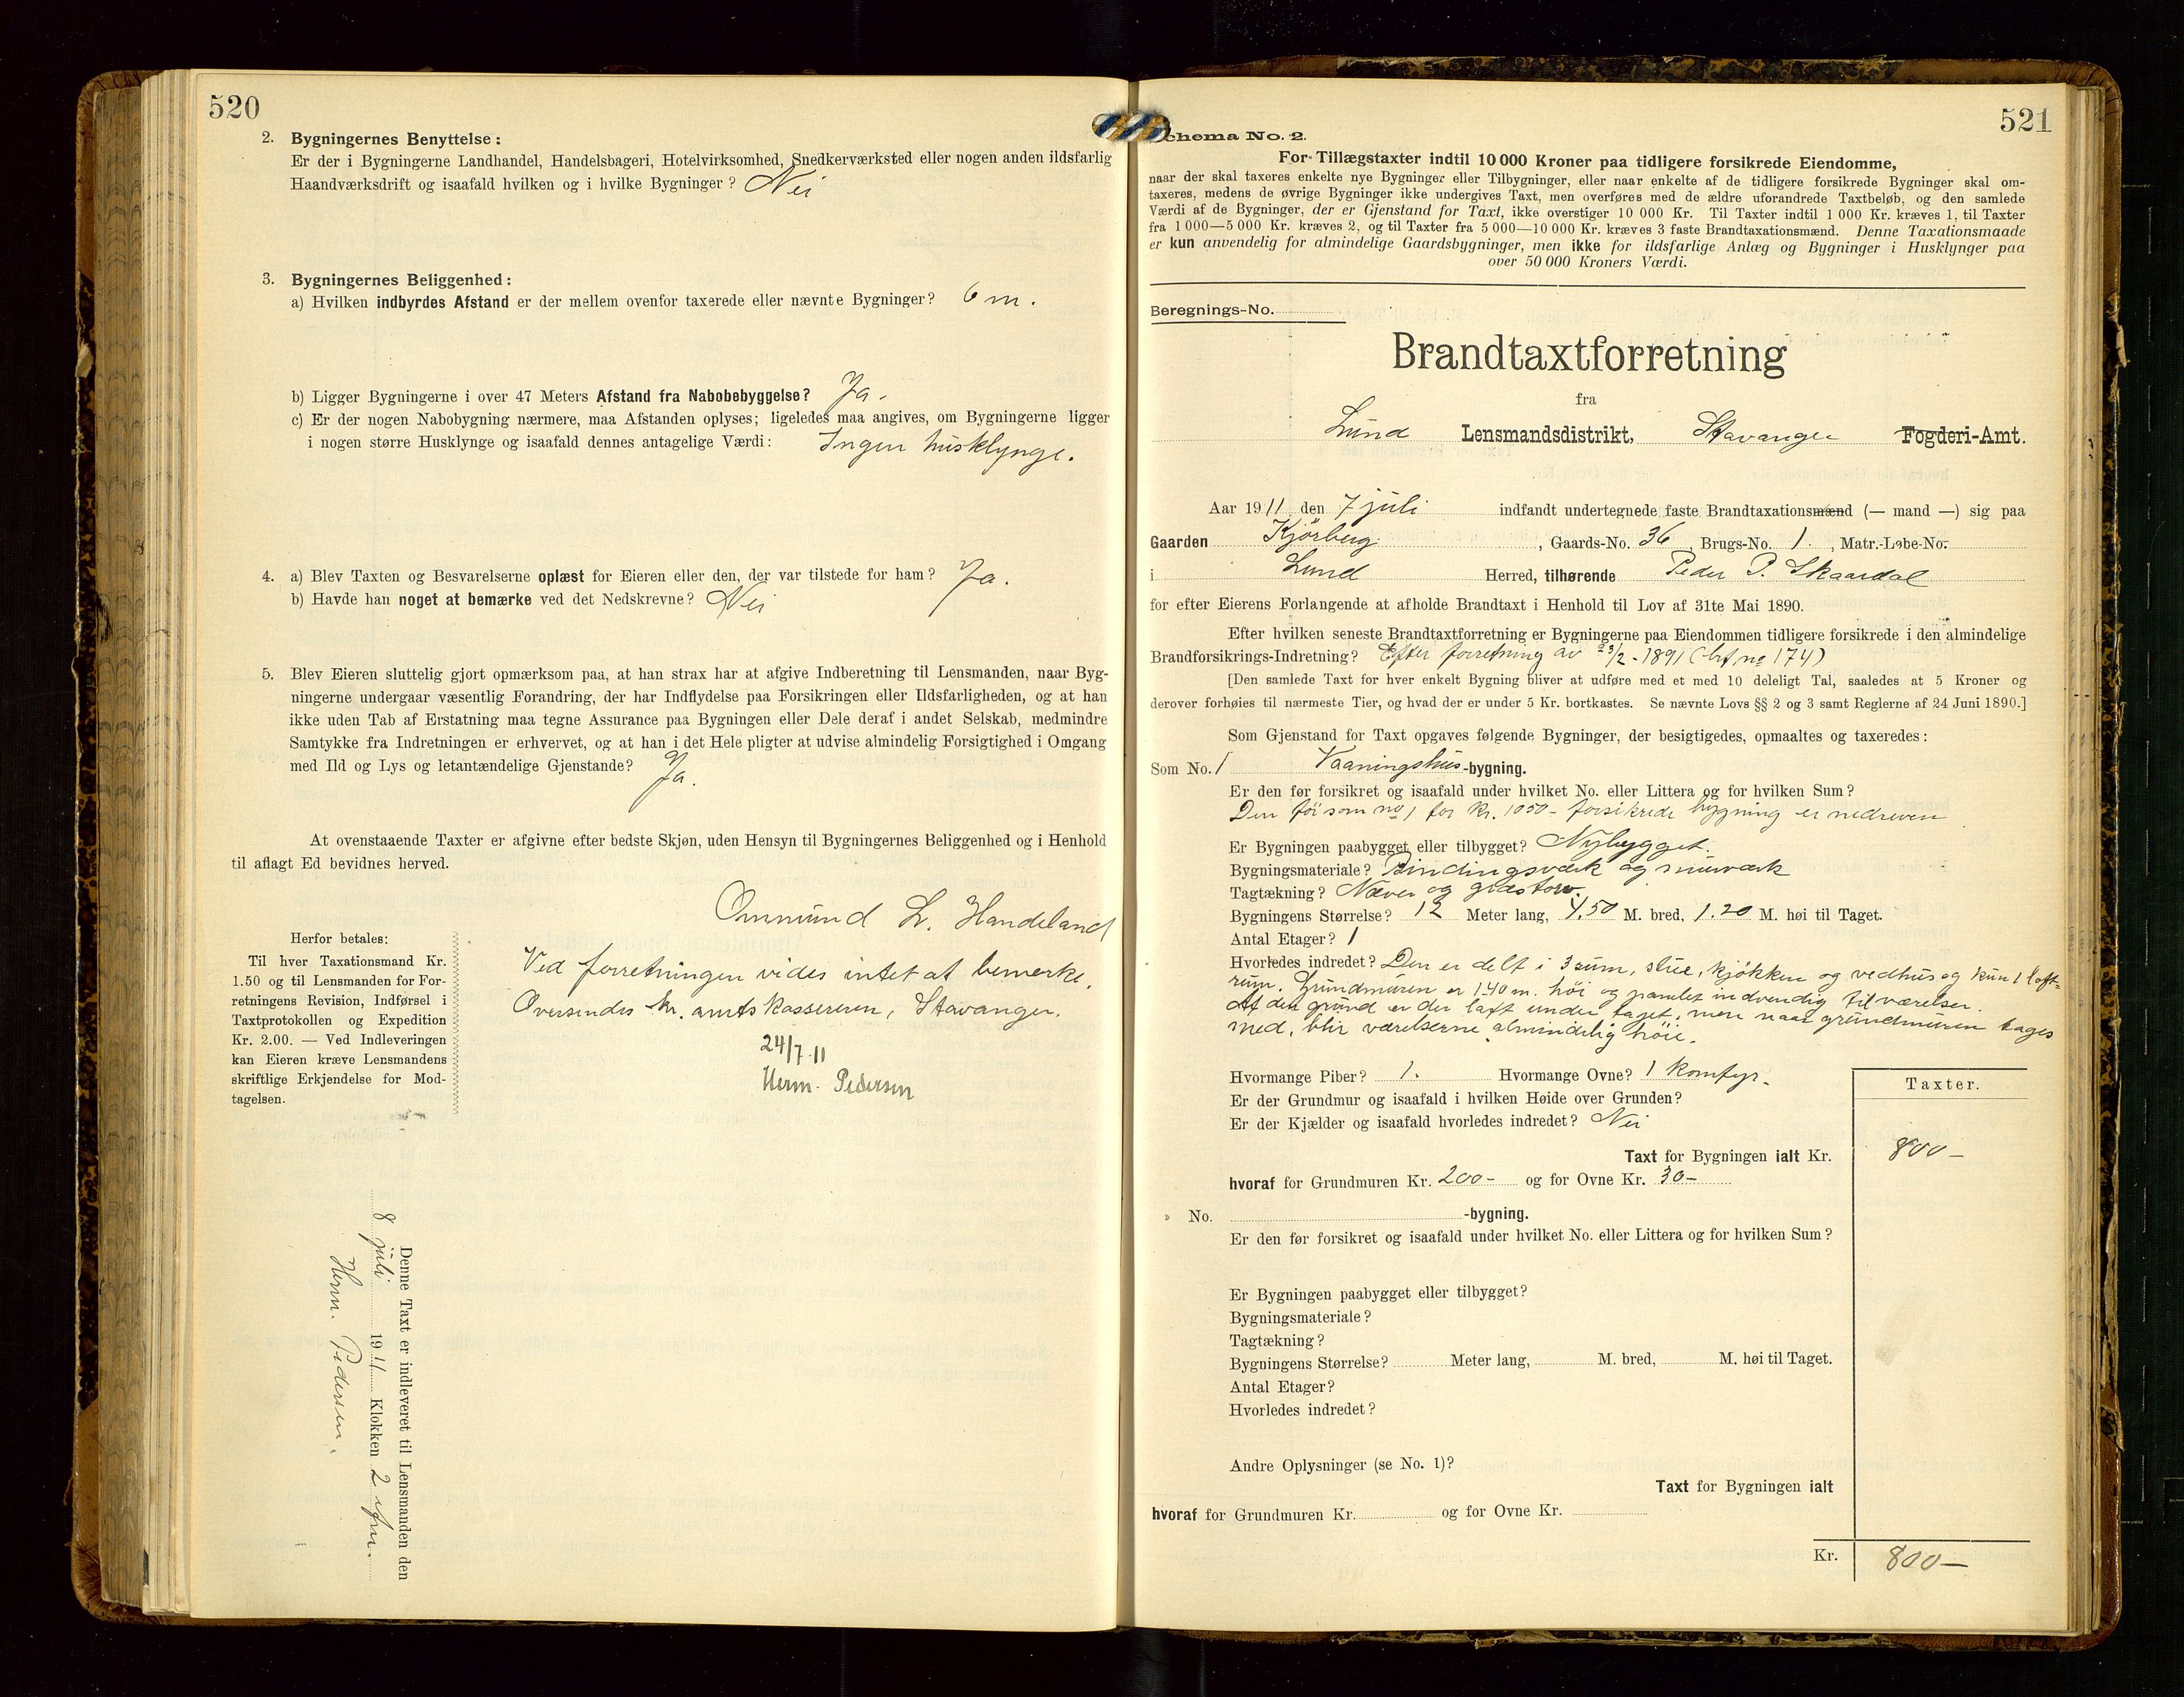 520
2. Bygningernes Benyttelse:
Er der i Bygningerne Landhandel, Handelsbageri, Hotelvirksomhed, Snedkerværksted eller nogen anden ildsfarlig
Haandværksdrift og isaafald hvilken og i hvilke Bygninger? Nei
3. Bygningernes Beliggenhed:
a) Hvilken indbyrdes Afstand er der mellem ovenfor taxerede eller nævnte Bygninger? 6 m.
b) Ligger Bygningerne i over 47 Meters Afstand fra Nabobebyggelse? Ja.
c) Er der nogen Nabobygning nærmere, maa Afstanden oplyses; ligeledes maa angives, om Bygningerne ligger
i nogen større Husklynge og isaafald dennes antagelige Værdi: Ingen husklynge.
4. a) Blev Taxten og Besvarelserne oplæst for Eieren eller den, der var tilstede for ham? Ja.
b) Havde han noget at bemærke ved det Nedskrevne? Nei
5. Blev Eieren sluttelig gjort opmærksom paa, at han strax har at afgive Indberetning til Lensmanden, naar Byg-
ningerne undergaar væsentlig Forandring, der har Indflydelse paa Forsikringen eller Ildsfarligheden, og at han
ikke uden Tab af Erstatning maa tegne Assurance paa Bygningen eller Dele deraf i andet Selskab, medmindre
Samtykke fra Indretningen er erhvervet, og at han i det Hele pligter at udvise almindelig Forsigtighed i Omgang
med Ild og Lys og letantændelige Gjenstande? Ja.
At ovenstaaende Taxter er afgivne efter bedste Skjøn, uden Hensyn til Bygningernes Beliggenhed og i Henhold
til aflagt Ed bevidnes herved.
Ommund L. Handeland
Herfor betales:
Til hver Taxationsmand Kr.
1.50 og til Lensmanden for For-
retningens Revision, Indførsel i
Taxtprotokollen og Expedition
Kr. 2.00. — Ved Indleveringen
kan Eieren kræve Lensmandens
skriftlige Erkjendelse for Mod-
tagelsen.
Ved forretningen vides intet at bemerke.
Oversendes hr. amtskassereren, Stavanger.
24/7.11
Herm. Pedersen
Denne Taxt er indleveret til Lensmanden den
8 juli 1911 Klokken 2 efm.
Herm. Pedersen.
521
chema No. 2.
For Tillægstaxter indtil 10 000 Kroner paa tidligere forsikrede Eiendomme,
naar der skal taxeres enkelte nye Bygninger eller Tilbygninger, eller naar enkelte af de tidligere forsikrede Bygninger skal om-
taxeres, medens de øvrige Bygninger ikke undergives Taxt, men overføres med de ældre uforandrede Taxtbeløb, og den samlede
Værdi af de Bygninger, der er Gjenstand for Taxt, ikke overstiger 10 000 Kr. Til Taxter indtil 1 000 Kr. kræves 1, til Taxter
fra 1 000—5 000 Kr. kræves 2, og til Taxter fra 5 000—10 000 Kr. kræves 3 faste Brandtaxationsmænd. Denne Taxationsmaade
er kun anvendelig for almindelige Gaardsbygninger, men ikke for ildsfarlige Anlæg og Bygninger i Husklynger paa
over 50 000 Kroners Værdi.
Beregnings-No.
Brandtaxtforretning
fra
Lund Lensmandsdistrikt, Stavanger Fogderi-Amt.
Aar 1911 den 7 juli indfandt undertegnede faste Brandtaxationsmænd (— mand —) sig paa
Gaarden Kjørberg, Gaards-No. 36 Brugs-No. 1., Matr.-Løbe-No.
i Lund Herred, tilhørende Peder P. Skaardal
for efter Eierens Forlangende at afholde Brandtaxt i Henhold til Lov af 31te Mai 1890.
Efter hvilken seneste Brandtaxtforretning er Bygningerne paa Eiendommen tidligere forsikrede i den almindelige
Brandforsikrings-Indretning? Efter forretning av 23/2-1891 (brf no 174)
[Den samlede Taxt for hver enkelt Bygning bliver at udføre med et med 10 deleligt Tal, saaledes at 5 Kroner og
derover forhøies til nærmeste Tier, og hvad der er under 5 Kr. bortkastes. Se nævnte Lovs §§ 2 og 3 samt Reglerne af 24 Juni 1890.]
Som Gjenstand for Taxt opgaves følgende Bygninger, der besigtigedes, opmaaltes og taxeredes:
Som No. 1 Vaaningshus-bygning.
Er den før forsikret og isaafald under hvilket No. eller Littera og for hvilken Sum?
Den før som no 1 for kr. 1050- forsikrede bygning er nedreven
Er Bygningen paabygget eller tilbygget? Nybygget.
Bygningsmateriale? Bindingsværk og murværk
Tagtækning? Næver og græstorv.
Bygningens Størrelse? 12 Meter lang, 4,50 M. bred, 1.20 M. høi til Taget.
Antal Etager? 1
Hvorledes indredet? Den er delt i 3 rum, stue, kjøkken og vedhus og kun 1 loft-
rum. Grundmuren er 1.40 m. høi og panelet indvendig til værelser.
Af den grund er der lavt under taget, men naar grundmuren tages
med, blir værelserne almindelig høie.
Hvormange Piber? 1. Hvormange Ovne? 1 komfyr.
Er der Grundmur og isaafald i hvilken Høide over Grunden?
Er der Kjælder og isaafald hvorledes indredet? Nei
Taxter.
Taxt for Bygningen ialt Kr. 800—
hvoraf for Grundmuren Kr. 200- og for Ovne Kr. 30-
» No. -bygning.
Er den før forsikret og isaafald under hvilket No. eller Littera og for hvilken Sum?
Er Bygningen paabygget eller tilbygget?
Bygningsmateriale?
Tagtækning?
Bygningens Størrelse? Meter lang, M. bred, M. høi til Taget.
Antal Etager?
Hvorledes indredet?
Andre Oplysninger (se No. 1)?
Taxt for Bygningen ialt
hvoraf for Grundmuren Kr. og for Ovne Kr.
Kr. 800—